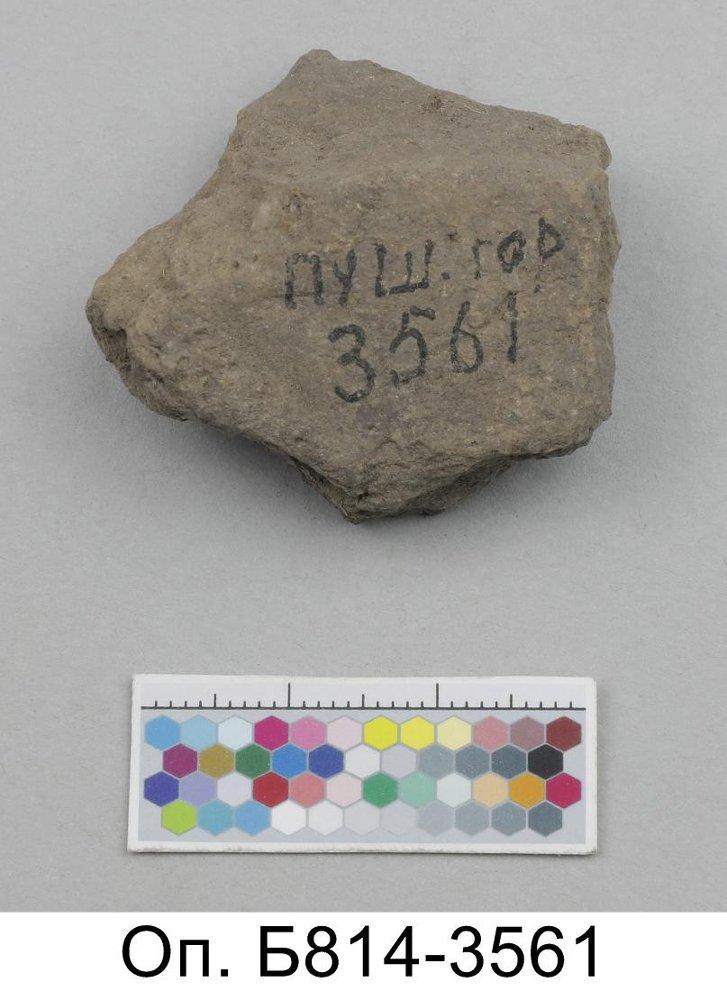 ПУШ. ГОР
3561
Оп. Б814-3561